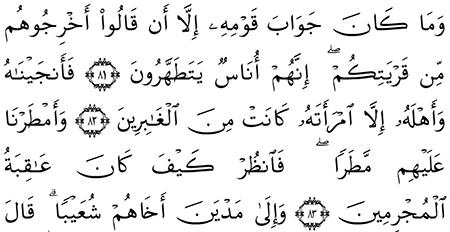 وَمَا كَانَ جَوَابَ قَوْمِهِۦ إِلَّا أَن قَالُوا۟ أَخْرِجُوهُم
مِّن قَرْيَتِكُمْ ۖ إِنَّهُمْ أُنَاسٌ يَتَطَهَّرُونَ ﴿٨١﴾ فَأَنجَيْنَـٰهُ
وَأَهْلَهُۥ إِلَّا ٱمْرَأَتَهُۥ كَانَتْ مِنَ ٱلْغَـٰبِرِينَ ﴿٨٢﴾ وَأَمْطَرْنَا
عَلَيْهِم مَّطَرًا ۖ فَٱنظُرْ كَيْفَ كَانَ عَـٰقِبَةُ
ٱلْمُجْرِمِينَ ﴿٨٣﴾ وَإِلَىٰ مَدْيَنَ أَخَاهُمْ شُعَيْبًا ۗ قَالَ